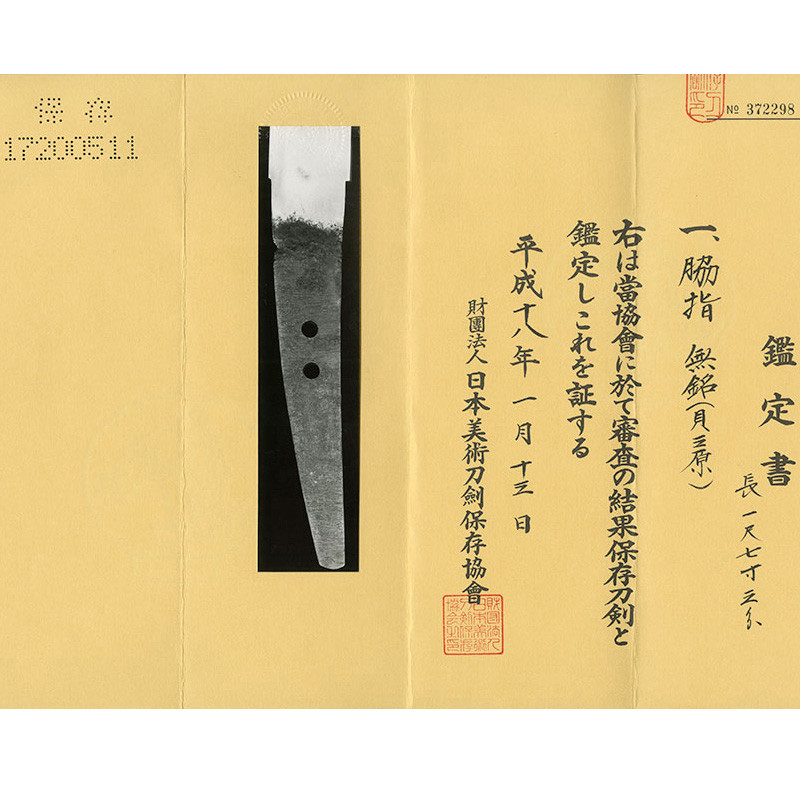 鑑定書
№ 372298
一、脇指 無銘(貝三原)
長 一尺七寸三分
右は當協會に於て審査の結果保存刀劍と
鑑定しこれを証する
平成十八年一月十三日
財團法人 日本美術刀劍保存協會
保存
17200511